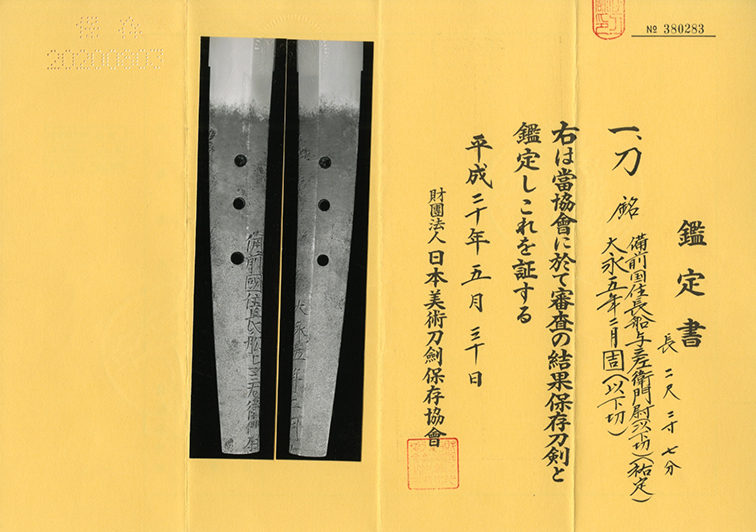 鑑定書
№ 380283
一、刀 銘 備前国住長船与三左衛門尉(以下切)(祐定)
大永五年二月(以下切)
長 二尺二寸七分
右は當協會に於て審査の結果保存刀剣と
鑑定しこれを証する
平成二十年五月三十日
財團法人日本美術刀劍保存協會
保存
20200803
備前國住長船与三左衛門尉
大永五年二月